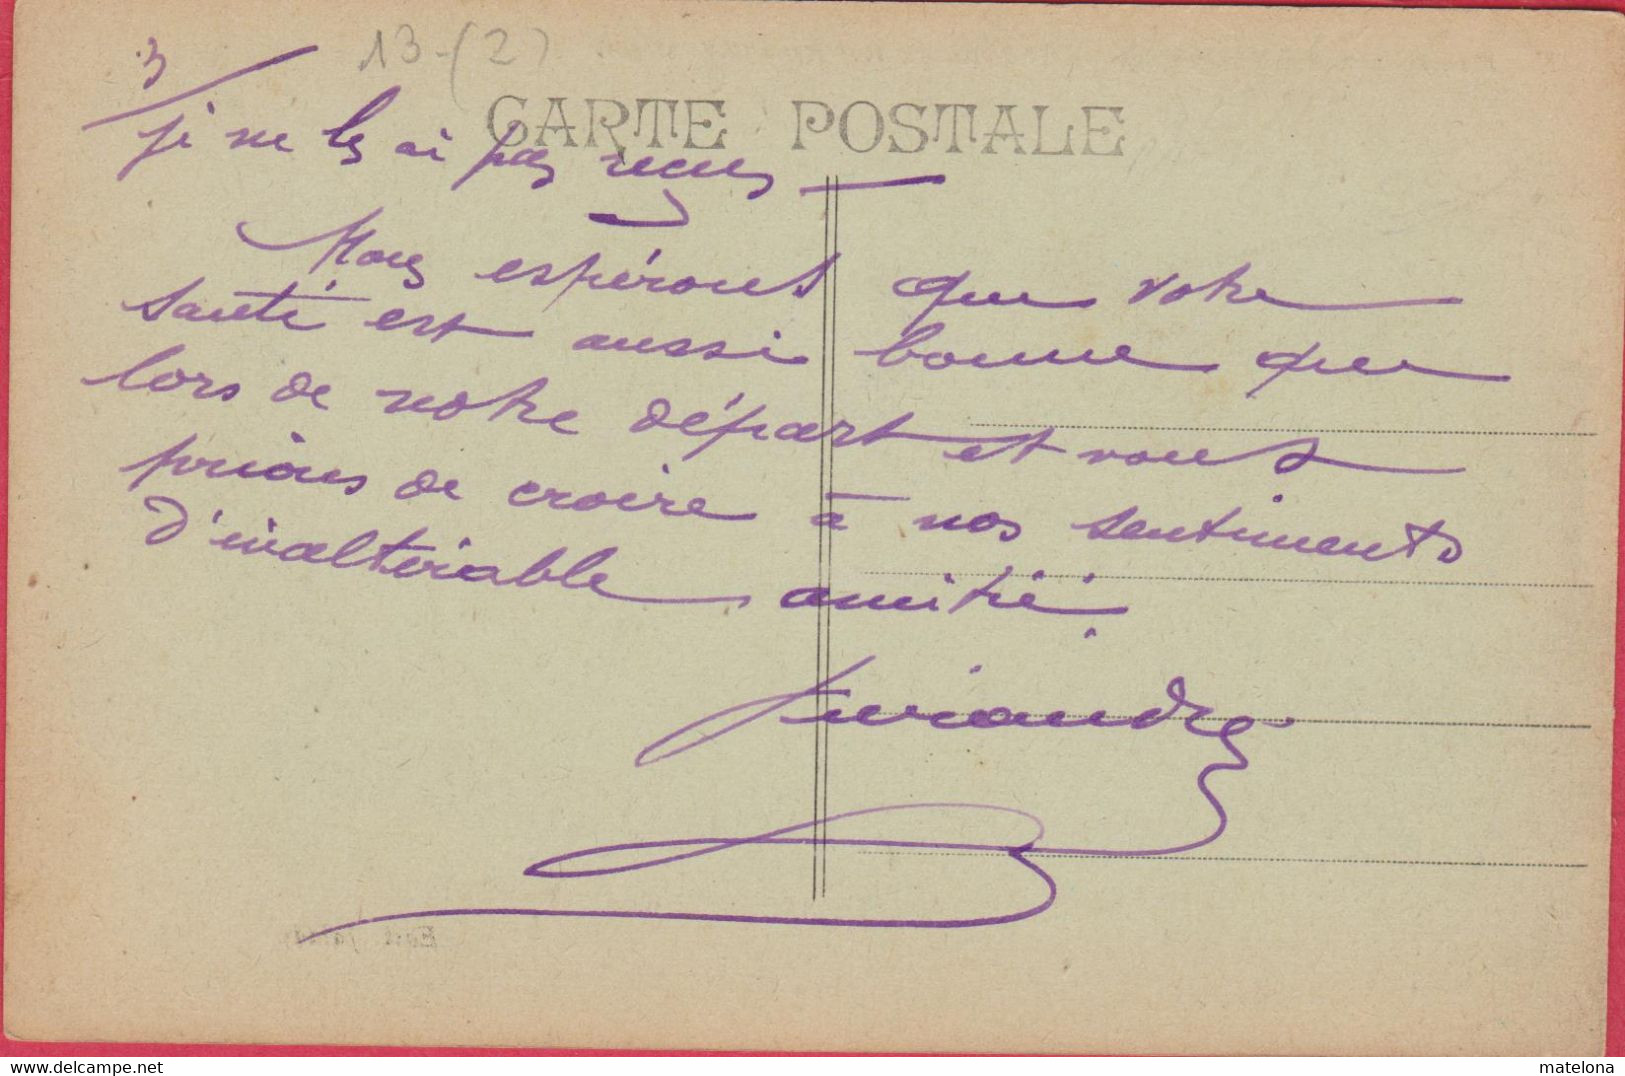 13-(2)
3
CARTE POSTALE
je ne les ai pas reçues
Nous espérons que votre
santé est aussi bonne que
lors de notre départ et vous
prions de croire à nos sentiments
d'inaltérable amitié.
delcampe.net
matelona